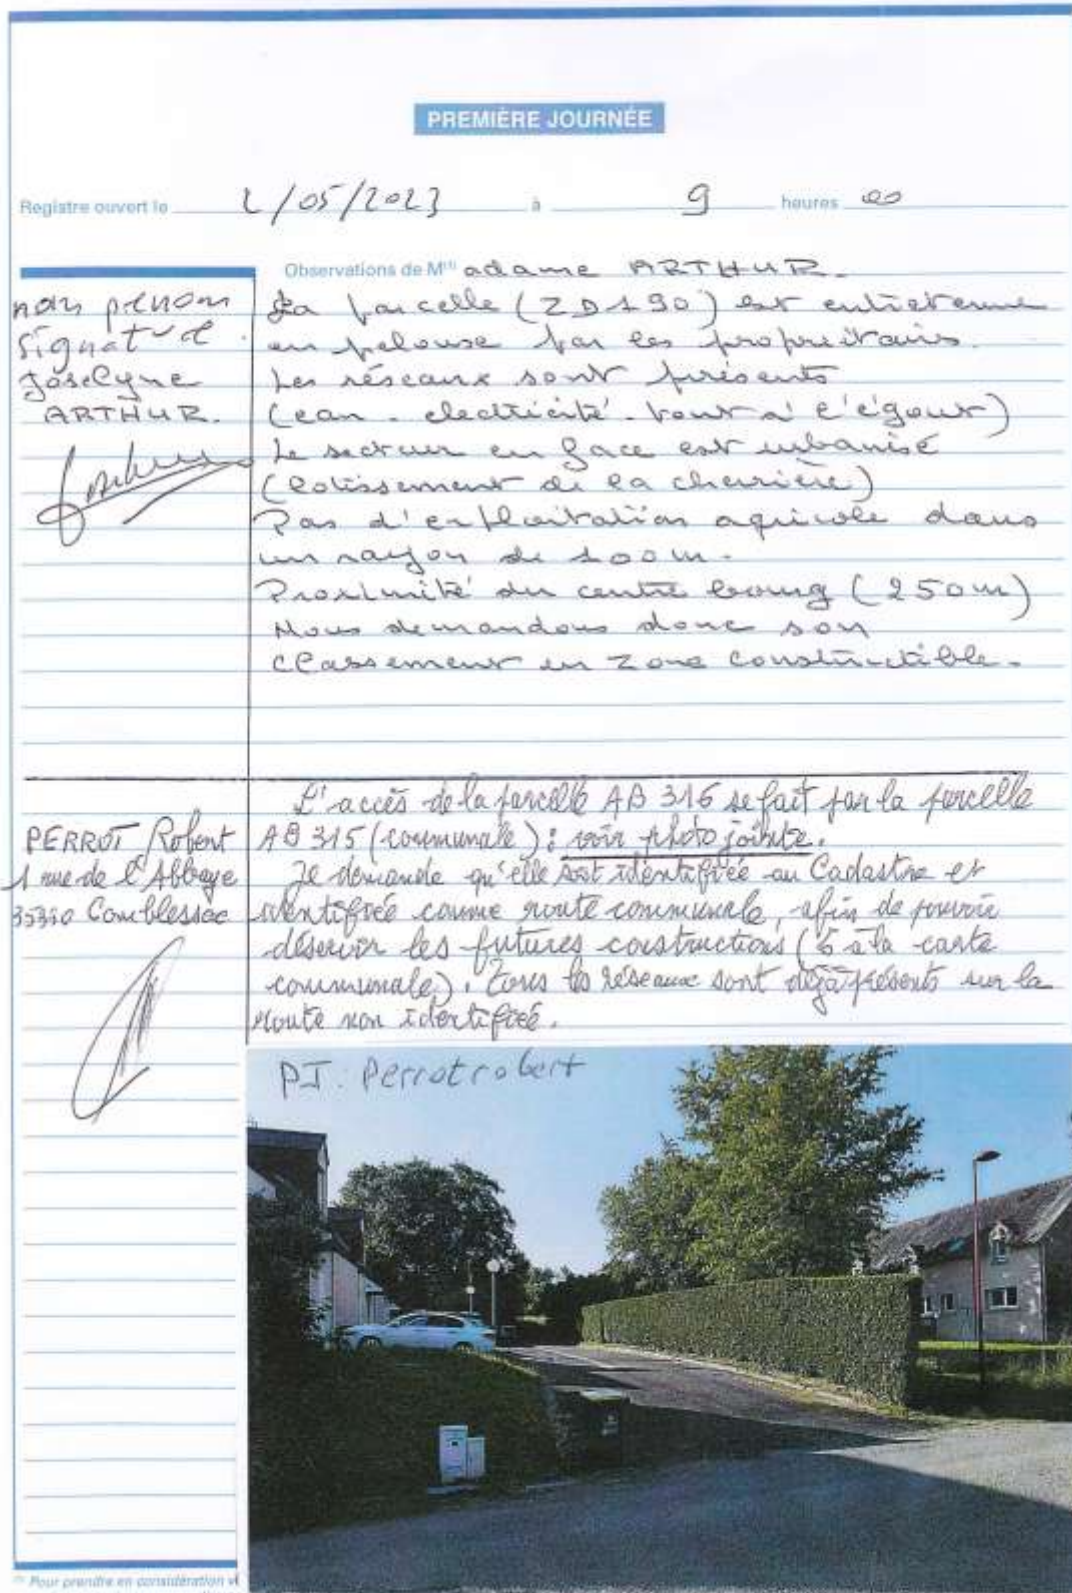 PREMIÈRE JOURNÉE
Registre ouvert le 2/05/2023 à 9 heures 00
Observations de M(1) adame ARTHUR.
nom prénom
signature
Joselyne
ARTHUR.
La parcelle (ZD190) est entretenue
en pelouse par les propriétaires.
Les réseaux sont présents
(eau - électricité - tout à l'égout)
Le secteur en face est urbanisé
(lotissement de la chevrière)
Pas d'exploitation agricole dans
un rayon de 100m.
Proximité du centre bourg (250m)
Nous demandons donc son
classement en zone constructible.
PERROT Robert
1 rue de l'Abbaye
35330 Comblessac
L'accès de la parcelle AB 316 se fait par la parcelle
AB 315 (communale) : voir photo jointe.
Je demande qu'elle soit identifiée au Cadastre et
identifiée comme route communale, afin de pouvoir
déservir les futures constructions (6 à la carte
communale). Tous les réseaux sont déjà présents sur la
route non identifiée.
PJ: Perrot robert
(1) Pour prendre en considération